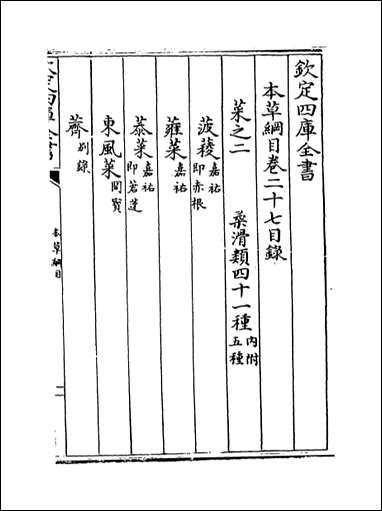 欽定四庫全書
本草綱目卷二十七目錄
菜之二 柔滑類四十一種內附五種
菠薐嘉祐即赤根
蕹菜嘉祐
菾菜嘉祐即莙薘
東風菜開寳
薺别錄
欽定四庫全書
本草綱目